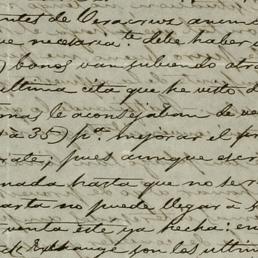 ntes de Veracruz anun
que necesariate debe haber
) bonos van subiendo otra
ultima cita que he visto d
nas le aconsejaban de ve
a 35) pa. mejorar el pr
rale; pues aunque
nada hasta que no se r
arta no puede llegar a
venta esté ya hecha: en
k Exchange son las ultim